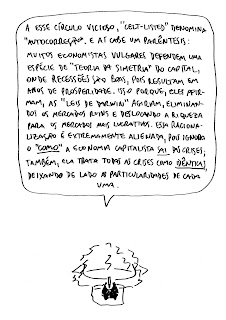 A ESSE CÍRCULO VICIOSO, "CELT-LISTED" DENOMINA
"AUTOCORREÇÃO". E AÍ CABE UM PARÊNTESIS:
MUITOS ECONOMISTAS VULGARES DEFENDEM UMA
ESPÉCIE DE "TEORIA DA SIMETRIA" DO CAPITAL,
ONDE RECESSÕES SÃO BOAS, POIS RESULTAM EM
ANOS DE PROSPERIDADE. ISSO PORQUE, ELES AFIR-
MAM, AS "LEIS DE DARWIN" AGIRIAM, ELIMINAN-
DO OS MERCADOS RUINS E DESLOCANDO A RIQUEZA
PARA OS MERCADOS MAIS LUCRATIVOS. ESSA RACIONA-
LIZAÇÃO É EXTREMAMENTE ALIENADA, POIS IGNORA
O "COMO" A ECONOMIA CAPITALISTA SAI DAS CRISES;
TAMBÉM, ELA TRATA TODAS AS CRISES COMO IDÊNTICAS,
DEIXANDO DE LADO AS PARTICULARIDADES DE CADA
UMA.